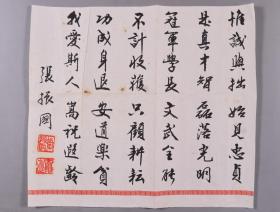 惟誠與拙 始見忠貞
是真才智 磊落光明
冠軍學長 文武全能
不計收穫 只顧耕耘
功成身退 安道樂貧
我愛斯人 嵩祝遐齡
張振國